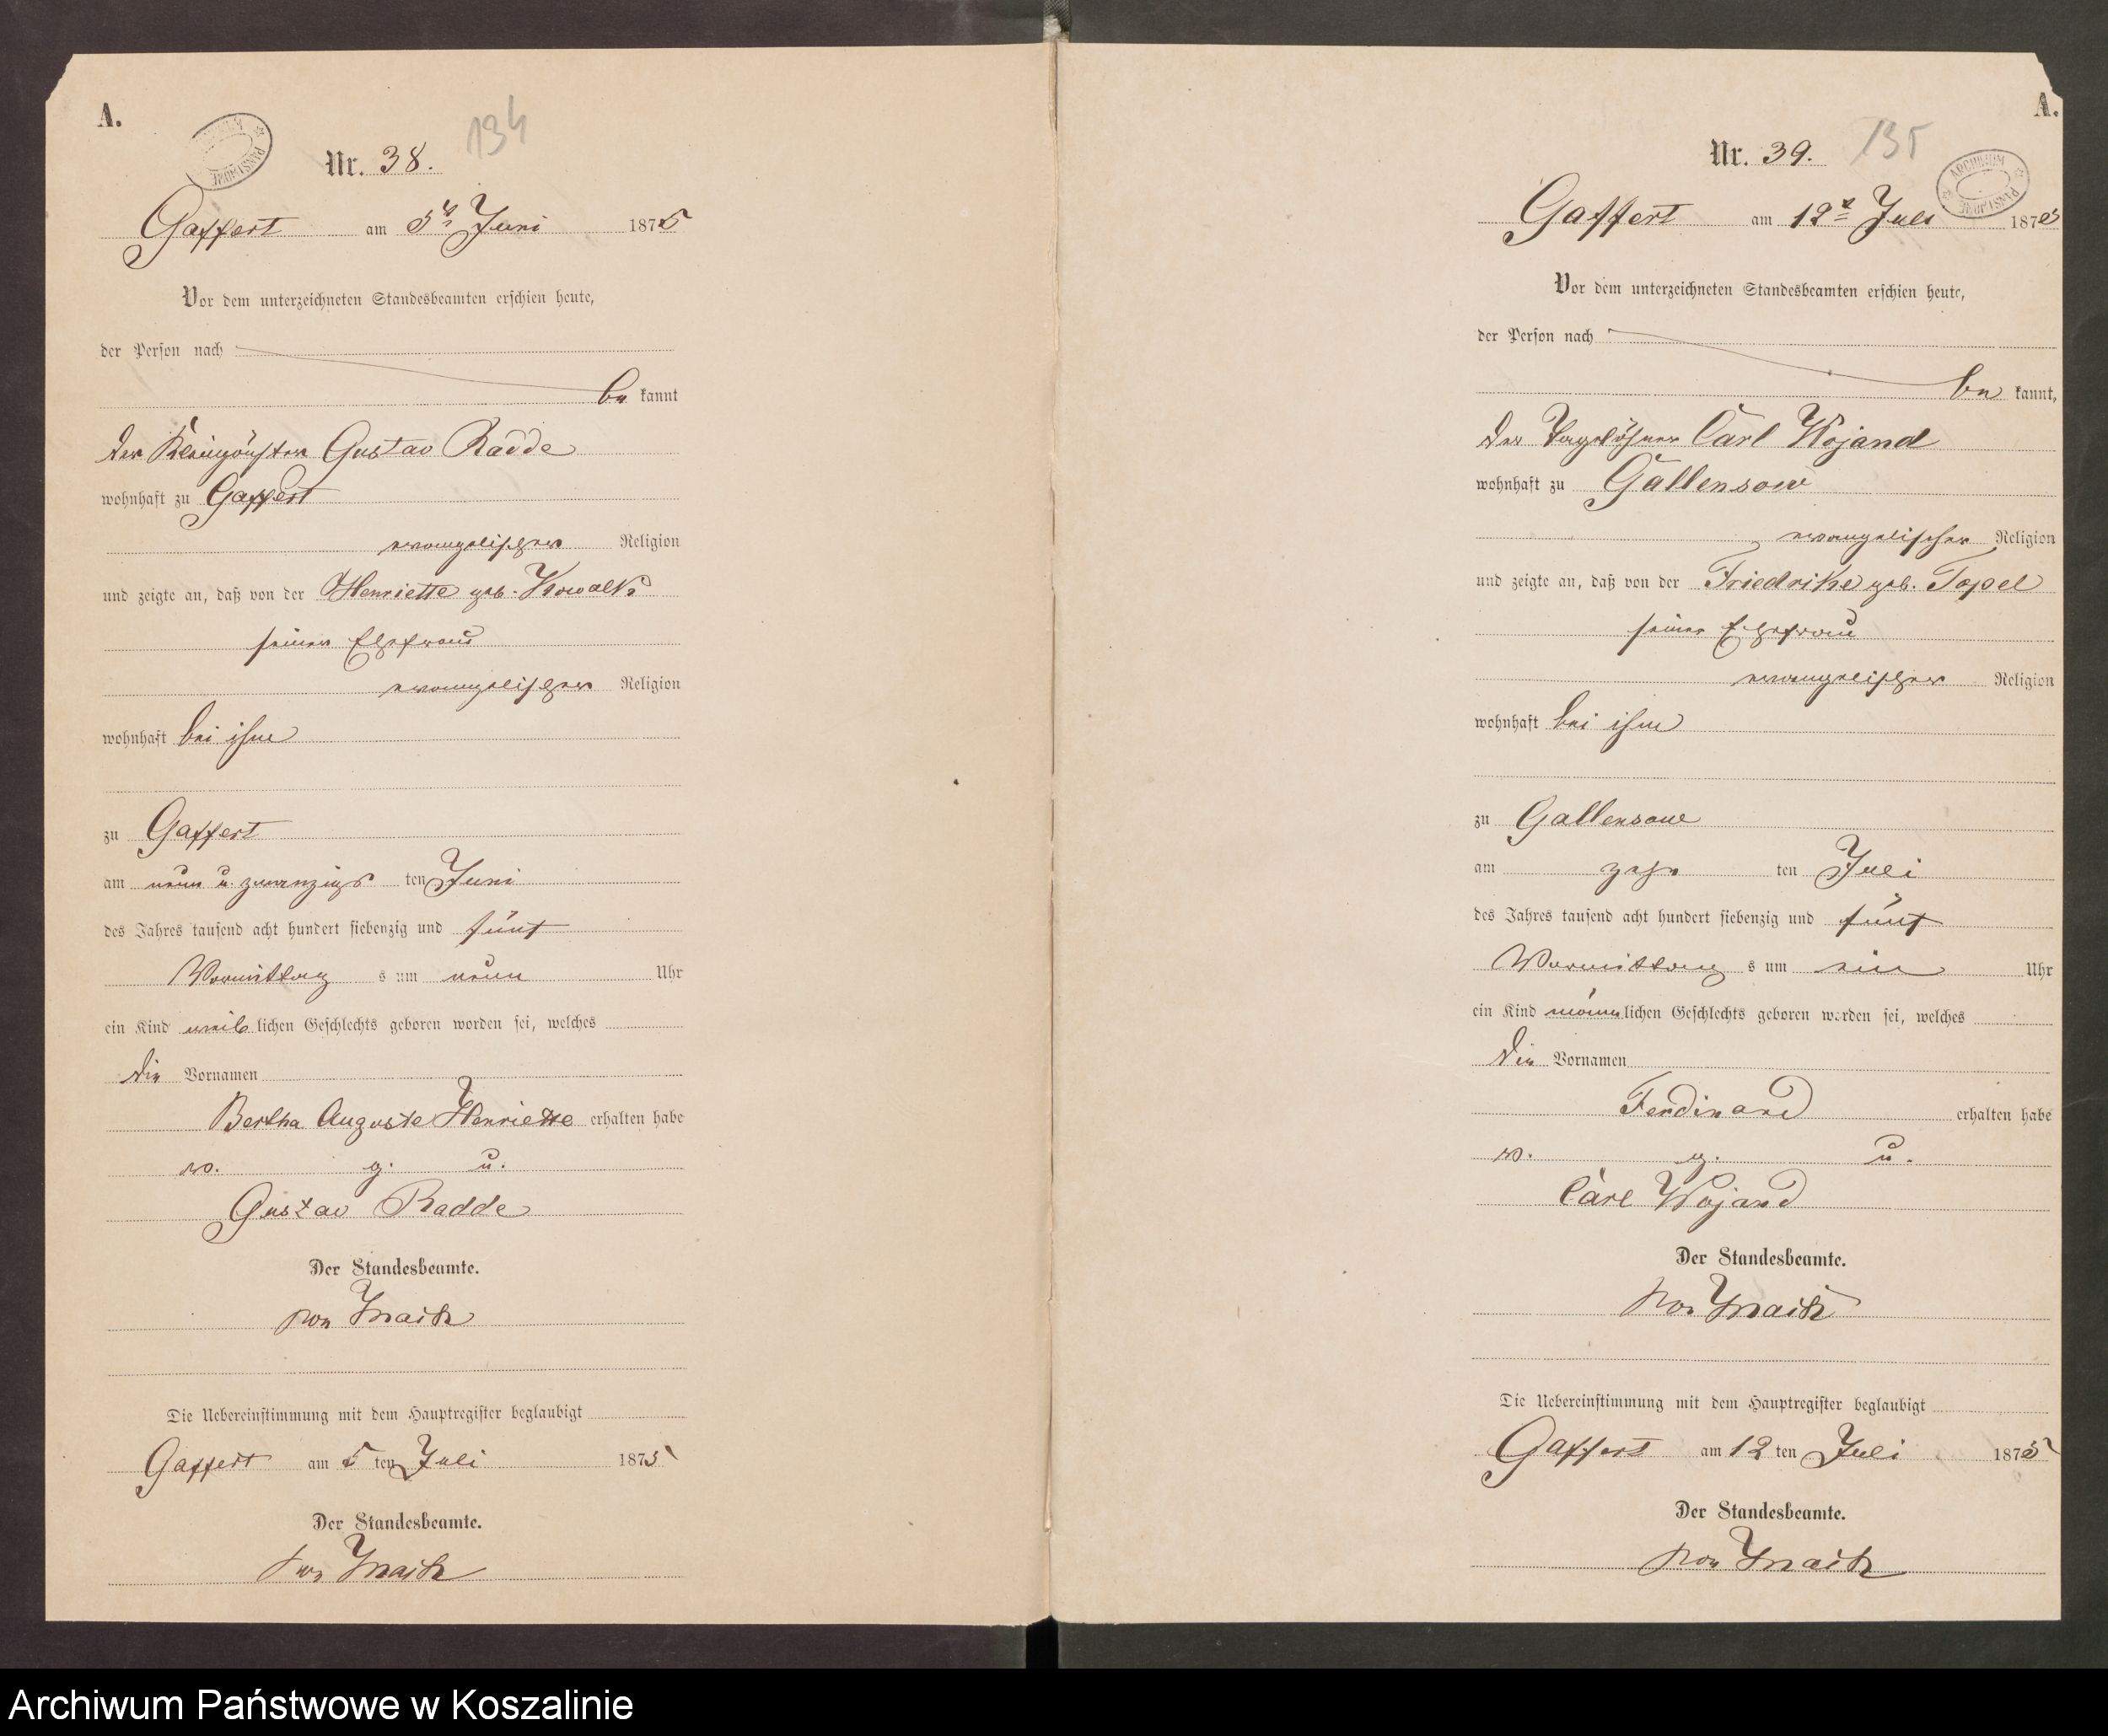 A.
134
Nr. 38.
Gaffert am 5t Juni 1875
Vor dem unterzeichneten Standesbeamten erschien heute,
der Person nach
be kannt
der Gustav Radde
wohnhaft zu Gaffert
evangelischer Religion
und zeigte an, daß von der Henriette geb. Kowalk
seiner Ehefrau
evangelischer Religion
wohnhaft bei ihm
zu Gaffert
am neun u. zwanzigs ten Juni
des Jahres tausend acht hundert siebenzig und fünf
Vormittag s um neun Uhr
ein Kind weib lichen Geschlechts geboren worden sei, welches
die Vornamen
Bertha Auguste Henriette erhalten habe
v. g. u.
Gustav Radde
Der Standesbeamte.
von
Die Uebereinstimmung mit dem Hauptregister beglaubigt
Gaffert am 5 ten Juli 1875
Der Standesbeamte.
von
A.
135
Nr. 39.
ARCHIWUM PAŃSTWOWE
Gaffert am 12t Juli 1875
Vor dem unterzeichneten Standesbeamten erschien heute,
der Person nach
be kannt,
der Tagelöhner Carl Wojand
wohnhaft zu Gallensow
evangelischer Religion
und zeigte an, daß von der Friedrike geb. Topel
seiner Ehefrau
evangelischer Religion
wohnhaft bei ihm
zu Gallensow
am zehn ten Juli
des Jahres tausend acht hundert siebenzig und fünf
Vormittag s um ein Uhr
ein Kind männ lichen Geschlechts geboren worden sei, welches
die Vornamen
Ferdinand erhalten habe
v. g. u.
Carl Wojand
Der Standesbeamte.
von
Die Uebereinstimmung mit dem Hauptregister beglaubigt
Gaffert am 12 ten Juli 1875
Der Standesbeamte.
von
Archiwum Państwowe w Koszalinie